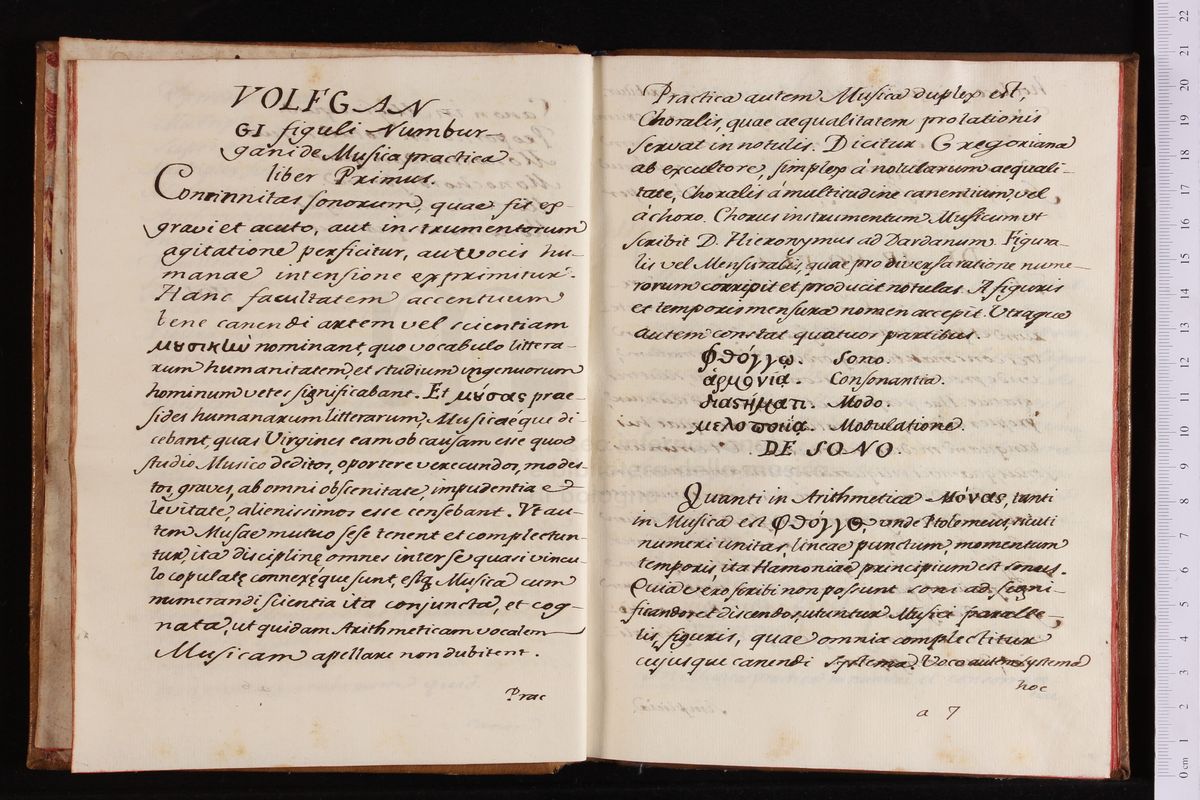 VOLFGAN
GI figuli Numbur
gani de Musica practica
liber Primus.
Concinnitas sonorum, quae fit ex
gravi et acuto, aut instrumentorum
agitatione perficitur, aut vocis hu-
manae intensione exprimitur.
Hanc facultatem accentuum
bene canendi artem vel scientiam
μυσικὴν nominant, quo vocabulo littera-
rum humanitatem, et studium ingenuorum
hominum vetes significabant. Et μύσας prae-
sides humanarum litterarum, Musicaéque di-
cebant, quas Virgines eam ob causam esse quod
studio Musico deditos, oportere verecundos, modes-
tos, graves, ab omni obscenitate, impudentia e
levitate, alienissimos esse censebant. Ut au-
tem Musae mutuo sese tenent et complectun-
tur, ita disciplinę omnes inter se quasi vincu-
lo copulatę connexęque sunt, estq Musica cum
numerandi scientia ita conjuncta, et cog-
nata, ut quidam Arithmeticam vocalem
Musicam apellare non dubitent.
Prac
Practica autem Musica duplex est,
Choralis, quae aequalitatem prolationis
servat in notulis. Dicitur Gregoriana
ab excultore, simplex á notularum aequali-
tate, Choralis á multitudine canentium, vel
a choro. Chorus instrumentum Musicum ut
scribit D. Hieronymus ad Dardanum. Figura-
lis vel Mensuralis, quae pro diversa ratione nume-
rorum corripit et producit notulas. A figuris
et temporis mensura nomen accepit. Utraque
autem constat quatuor partibus.
Φθόγγω. Sono.
ἁρμονία. Consonantia.
διαστήματι. Modo.
μελοποιία. Modulatione.
DE SONO.
Quanti in Arithmetica Μόνας, tanti
in Musica est Φθόγγο, unde Ptolemeus, sicuti
numeri unitas, lineae punctum, momentum
temporis, ita Hamoniae principium est sonus.
Quia vero scribi non possunt soni ad signi-
ficandos et discendos, utuntur Musici paralle-
lis, figuris, quae omnia complectitur
cujusque canendi systema. Voco autem systema
hoc
a 7
0 cm 1 2 3 4 5 6 7 8 9 10 11 12 13 14 15 16 17 18 19 20 21 22